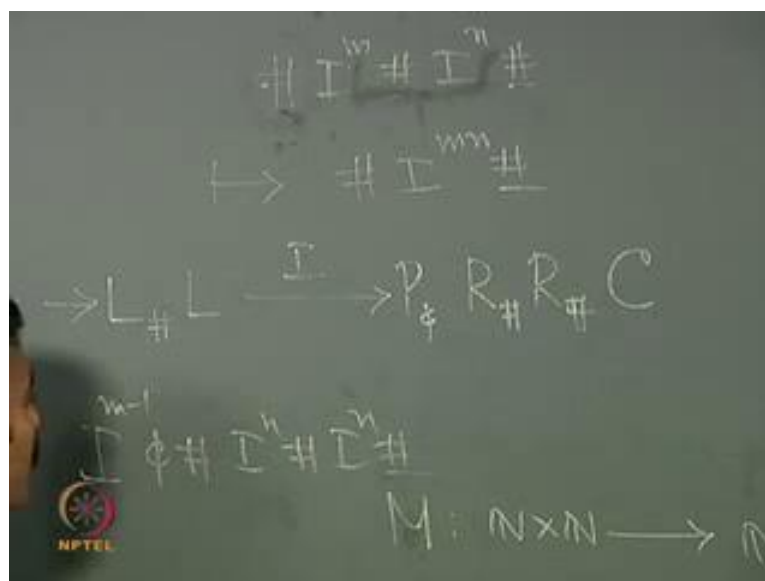 # I^m # I^n #
↦ # I^{mn} #
→ L_# L —I→ P_¢ R_# R_# C
I^{m-1} ¢ # I^n # I^n #
M : ℕ×ℕ ⟶ ℕ
NPTEL